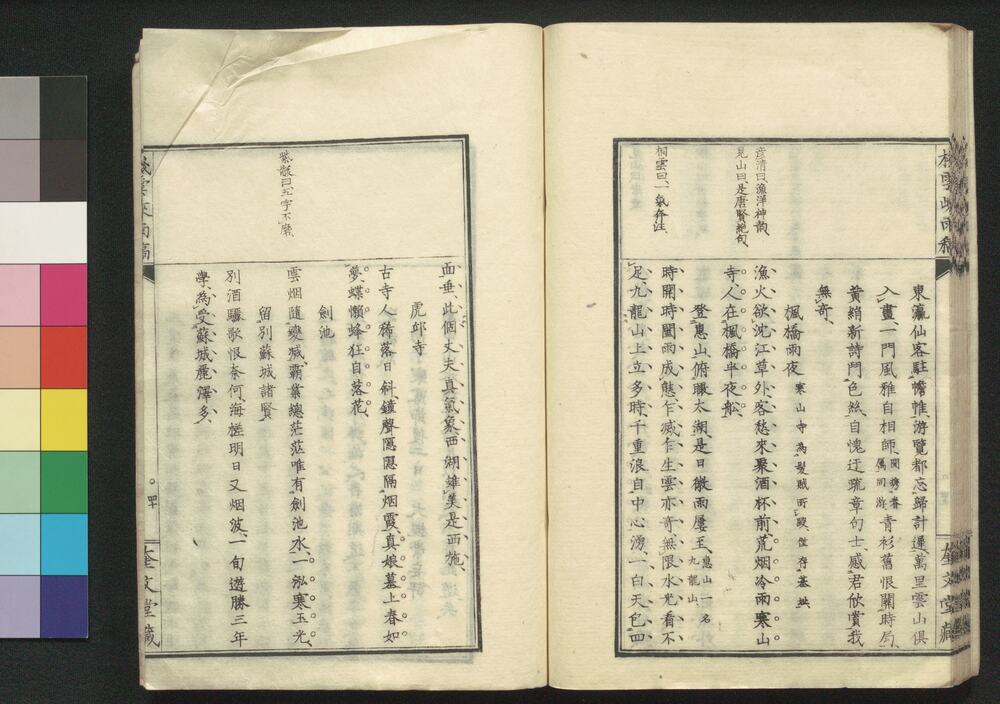 棧雲峽雨稿
東瀛仙客駐幨帷、游覽都忘歸計遲、萬里雲山俱
入畫、一門風雅自相師、閨秀眷屬同游青衫舊恨關時局、
黃絹新詩鬥色絲、自愧迂疏章句士、感君欣賞我
無奇、
楓橋雨夜寒山寺為髮賊所毀、僅存基址、
漁火欲沈江草外、客愁來聚酒杯前、荒烟冷雨寒山
寺、人在楓橋半夜船、
登惠山俯瞰太湖、是日微雨屢至、惠山一名九龍山、
時開時闔雨成態、乍滅乍生雲亦奇、無限水光看不
足、九龍山上立多時、千重浪自中心湧、一白天包四
彥清曰、漁洋神韵、
見山曰、是唐賢絕句、
桐雲曰、一氣奔注、
奎文堂藏
面垂、此個丈夫真氣象、西湖雖美是西施、
虎邱寺
古寺人稀落日斜、鐘聲隱隱隔烟霞、真娘墓上春如
夢、蝶懶蜂狂自落花、
劍池
雲烟隨變滅、霸業總茫茫、唯有劍池水、一泓寒玉光、
留別蘇城諸賢
別酒驪歌恨奈何、海槎明日又烟波、一旬遊勝三年
學、為受蘇城麗澤多、
紫詮曰、五字不磨、
棧雲峽雨稿
四十
奎文堂藏